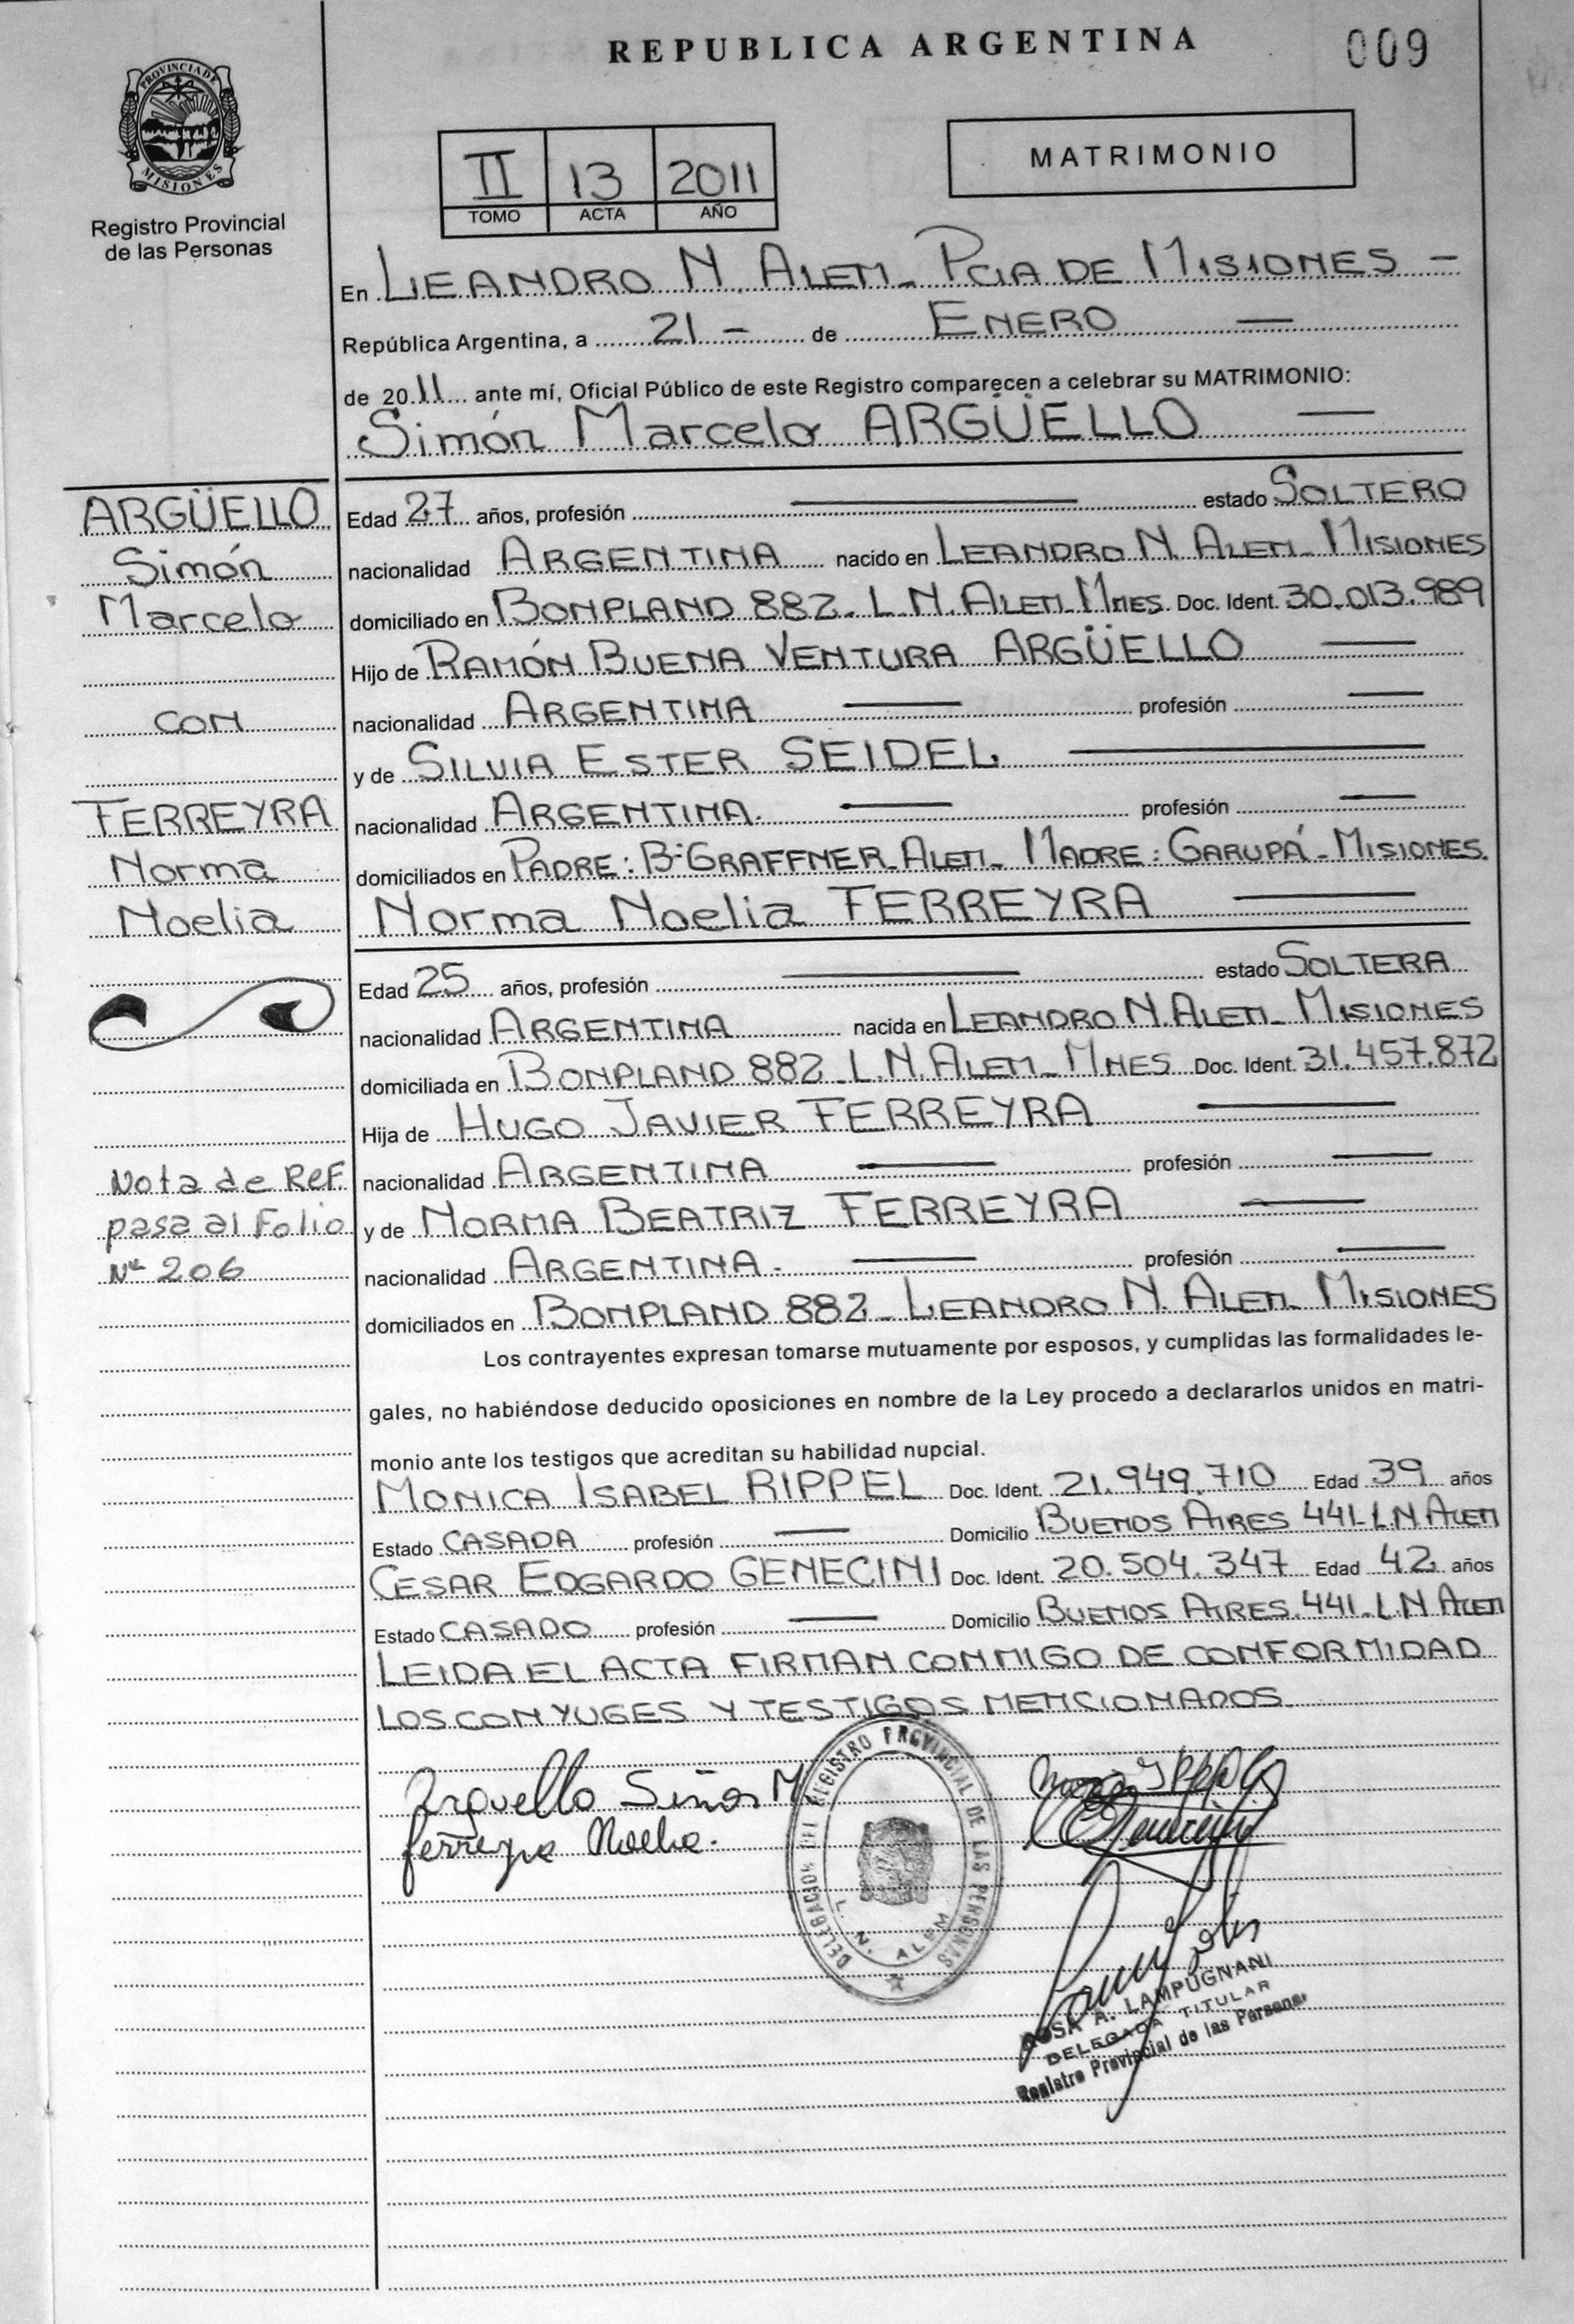 REPUBLICA ARGENTINA
009
PROVINCIA DE
MISIONES
Registro Provincial
de las Personas
II 13 2011
TOMO ACTA AÑO
MATRIMONIO
En LEANDRO N. ALEM_ PCIA DE MISIONES –
República Argentina, a 21 – de ENERO —
de 2011 ante mí, Oficial Público de este Registro comparecen a celebrar su MATRIMONIO:
Simón Marcelo ARGÜELLO —
ARGÜELLO
Simón
Marcelo
con
FERREYRA
Norma
Noelia
Edad 27 años, profesión — estado SOLTERO
nacionalidad ARGENTINA nacido en LEANDRO N. ALEM_ MISIONES
domiciliado en BONPLAND 882_ L.N. ALEM_ MNES. Doc. Ident. 30.013.989
Hijo de RAMÓN BUENA VENTURA ARGÜELLO —
nacionalidad ARGENTINA — profesión —
y de SILVIA ESTER SEIDEL. —
nacionalidad ARGENTINA. — profesión —
domiciliados en PADRE: Bº GRAFFNER_ ALEM_ MADRE: GARUPÁ_ MISIONES.
Norma Noelia FERREYRA —
Edad 25 años, profesión — estado SOLTERA
nacionalidad ARGENTINA nacida en LEANDRO N. ALEM_ MISIONES
domiciliada en BONPLAND 882_ L.N. ALEM_ MNES Doc. Ident. 31.457.872
Hija de HUGO JAVIER FERREYRA —
nacionalidad ARGENTINA — profesión —
y de NORMA BEATRIZ FERREYRA —
nacionalidad ARGENTINA. — profesión —
domiciliados en BONPLAND 882_ LEANDRO N. ALEM_ MISIONES
Nota de Ref.
pasa al Folio
Nº 206
Los contrayentes expresan tomarse mutuamente por esposos, y cumplidas las formalidades le-
gales, no habiéndose deducido oposiciones en nombre de la Ley procedo a declararlos unidos en matri-
monio ante los testigos que acreditan su habilidad nupcial.
MONICA ISABEL RIPPEL Doc. Ident. 21.949.710 Edad 39 años
Estado CASADA profesión — Domicilio BUENOS AIRES 441_ L N ALEM
CESAR EDGARDO GENECINI Doc. Ident. 20.504.347 Edad 42 años
Estado CASADO profesión — Domicilio BUENOS AIRES 441_ L N ALEM
LEIDA EL ACTA FIRMAN CONMIGO DE CONFORMIDAD
LOS CONYUGES Y TESTIGOS MENCIONADOS
Arguello Simon M
Ferreyra Noelia.
REGISTRO PROVINCIAL DE LAS PERSONAS
L. N. ALEM
ROSA A. LAMPUGNANI
DELEGADA TITULAR
Registro Provincial de las Personas